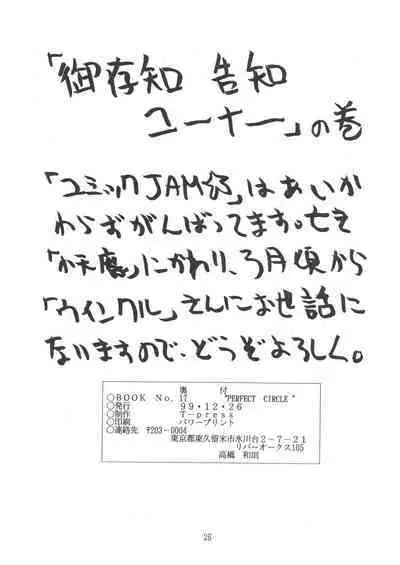 「御存知 告知
コーナー」の巻
「コミックJAM☆」はあいか
わらずがんばってます。亡き
「小天魔」にかわり、3月頃から
「ウインクル」さんにお世話に
ないますので、どうぞよろしく。
奥 付
○BOOK No.17 "PERFECT CIRCLE"
○発行 99・12・26
○制作 T-press
○印刷 パワープリント
○連絡先 〒203-0004
東京都東久留米市氷川台2-7-21
リバーオークス105
高橋 和
26